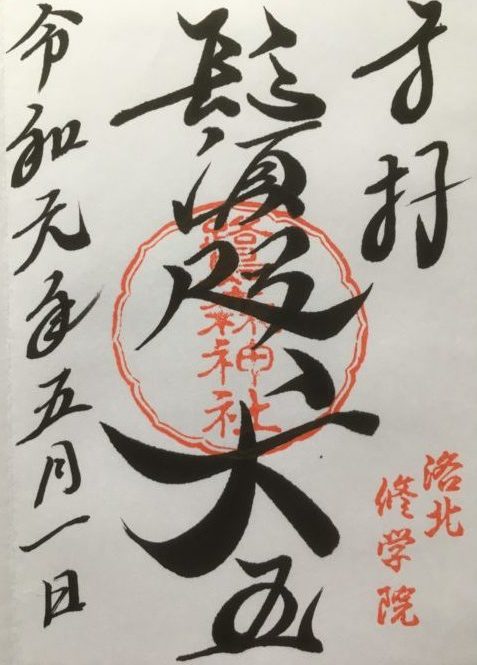 奉拝
洛北
修学院
鬚咫天王
鷺森神社
令和元年五月一日